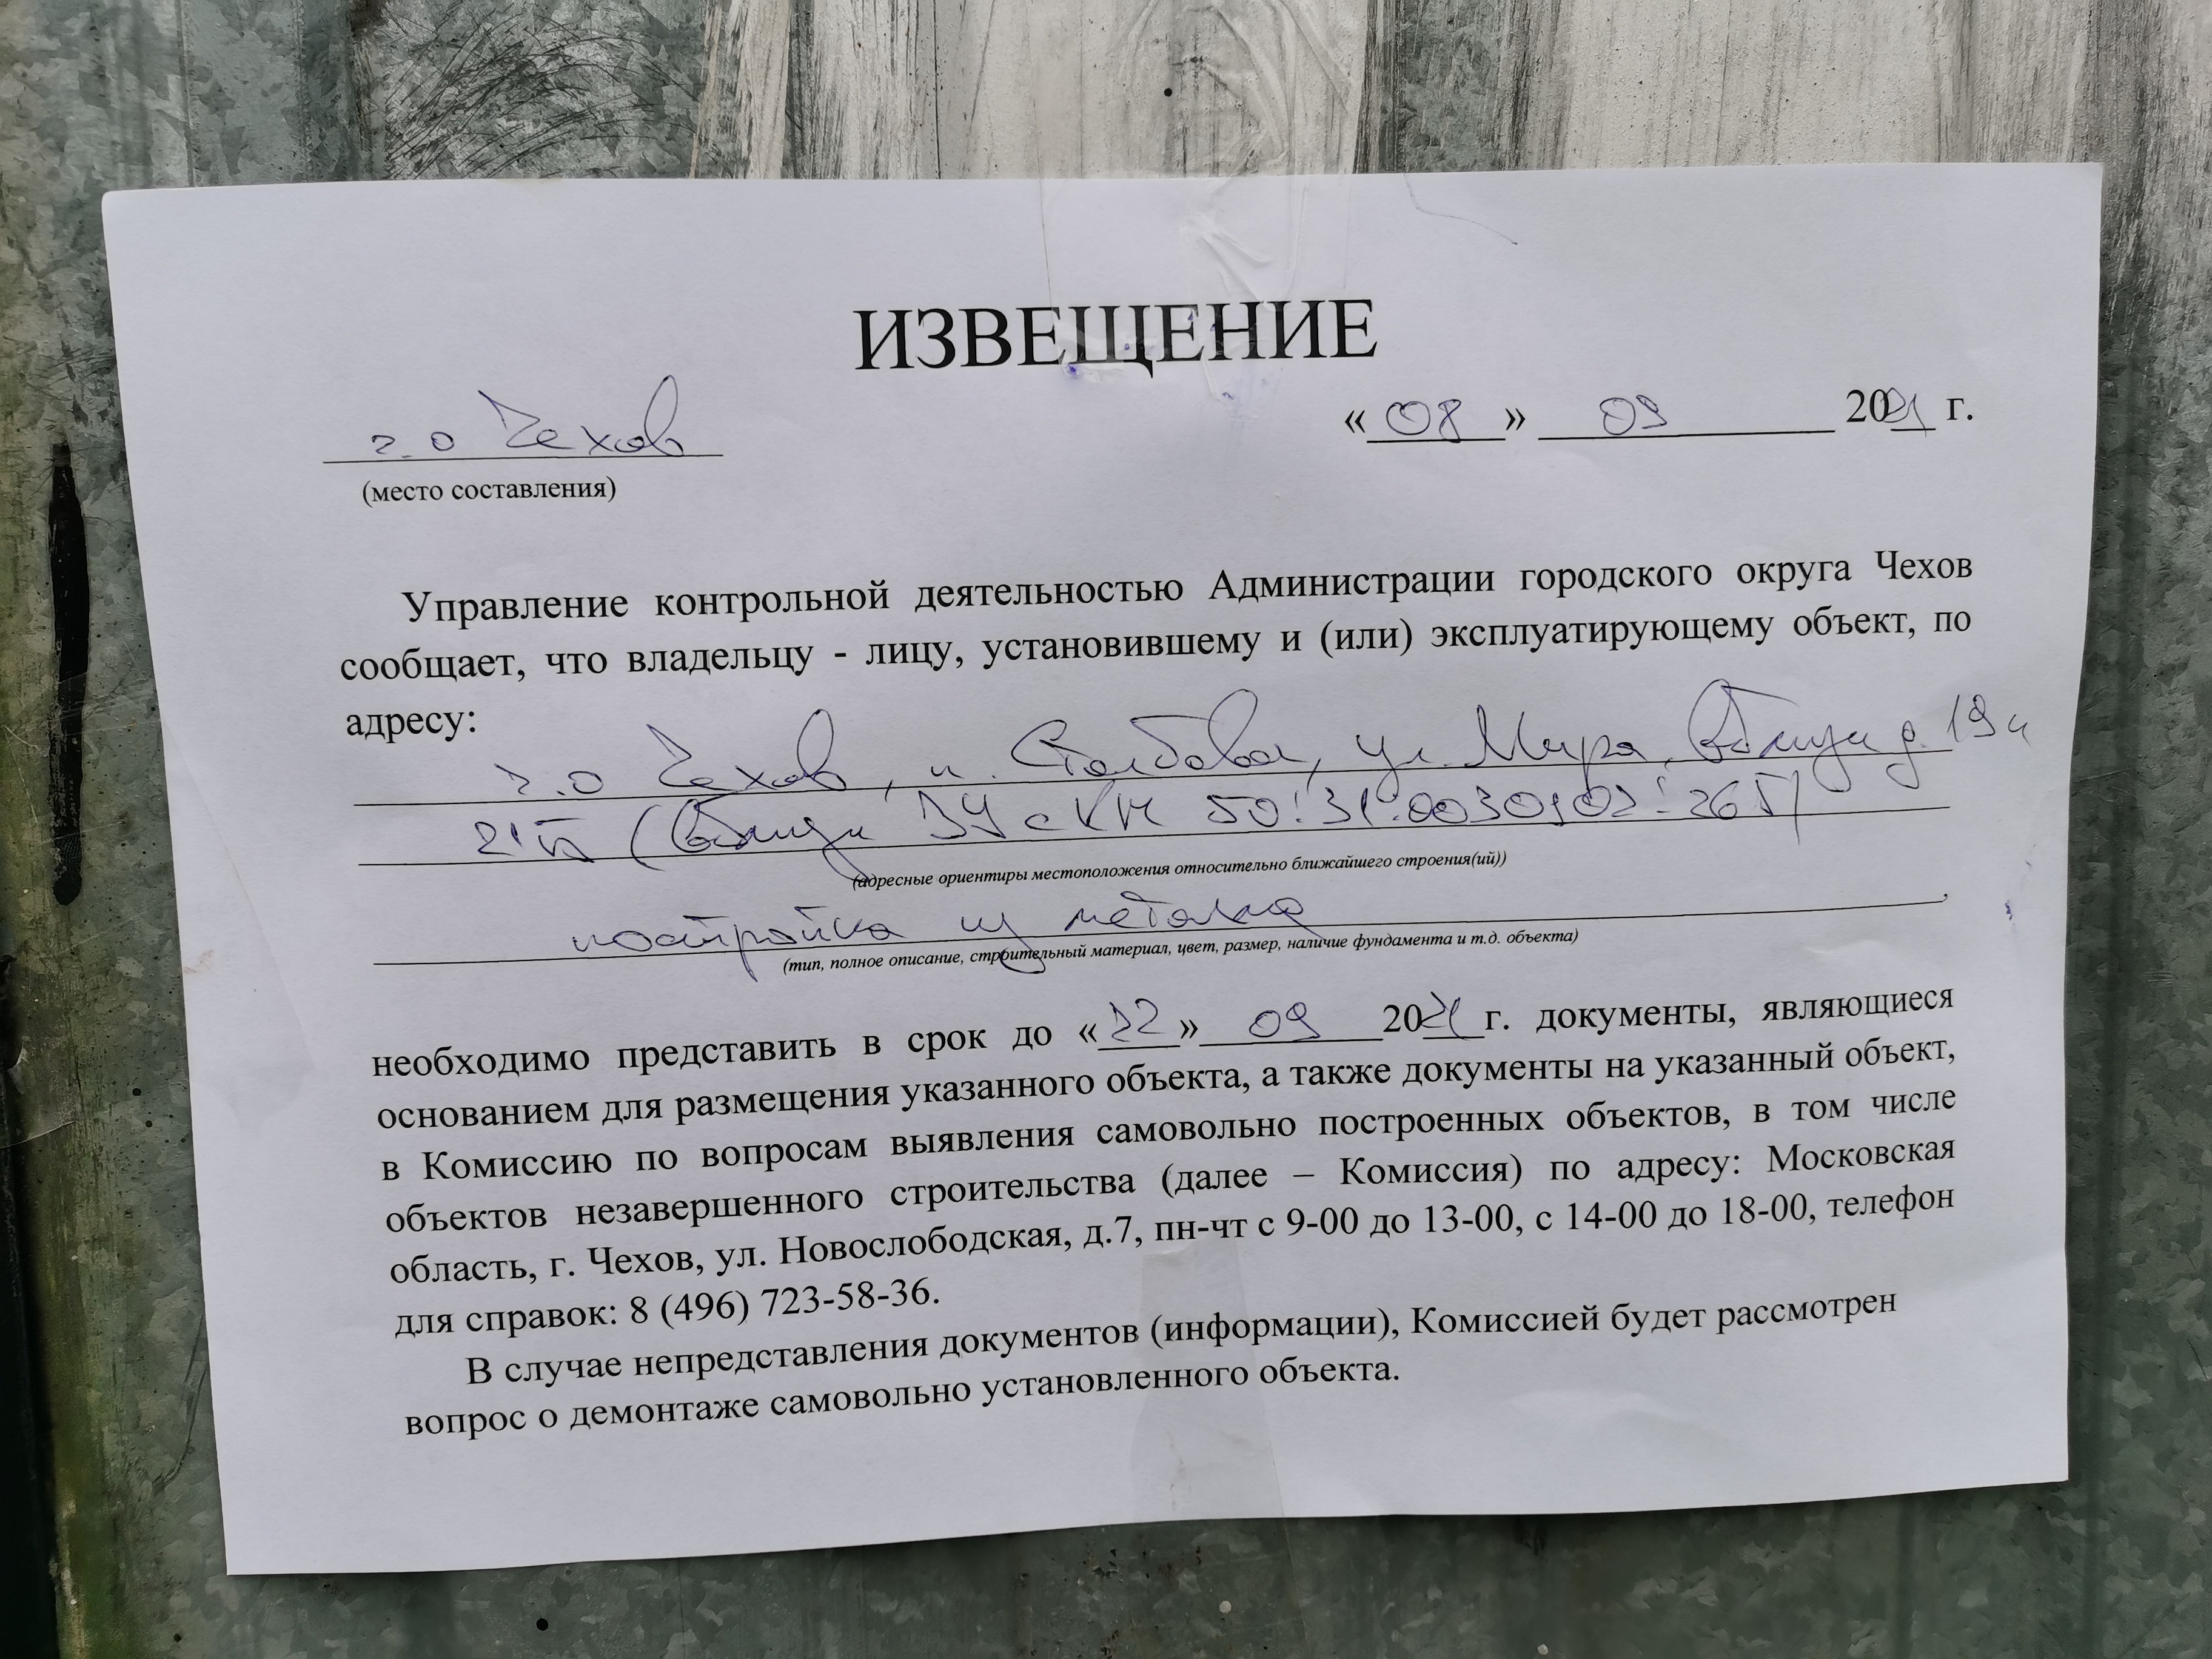 ИЗВЕЩЕНИЕ
г.о Чехов
«08» 09 2021 г.
(место составления)
Управление контрольной деятельностью Администрации городского округа Чехов
сообщает, что владельцу - лицу, установившему и (или) эксплуатирующему объект, по
адресу:
г.о Чехов, п. Столбовая, ул. Мира, вблизи д. 19 и
21 (вблизи ЗУ с КН 50:31:0030902:265)
(адресные ориентиры местоположения относительно ближайшего строения(ий))
постройка из метала ,
(тип, полное описание, строительный материал, цвет, размер, наличие фундамента и т.д. объекта)
необходимо представить в срок до «22» 09 2021 г. документы, являющиеся
основанием для размещения указанного объекта, а также документы на указанный объект,
в Комиссию по вопросам выявления самовольно построенных объектов, в том числе
объектов незавершенного строительства (далее – Комиссия) по адресу: Московская
область, г. Чехов, ул. Новослободская, д.7, пн-чт с 9-00 до 13-00, с 14-00 до 18-00, телефон
для справок: 8 (496) 723-58-36.
В случае непредставления документов (информации), Комиссией будет рассмотрен
вопрос о демонтаже самовольно установленного объекта.